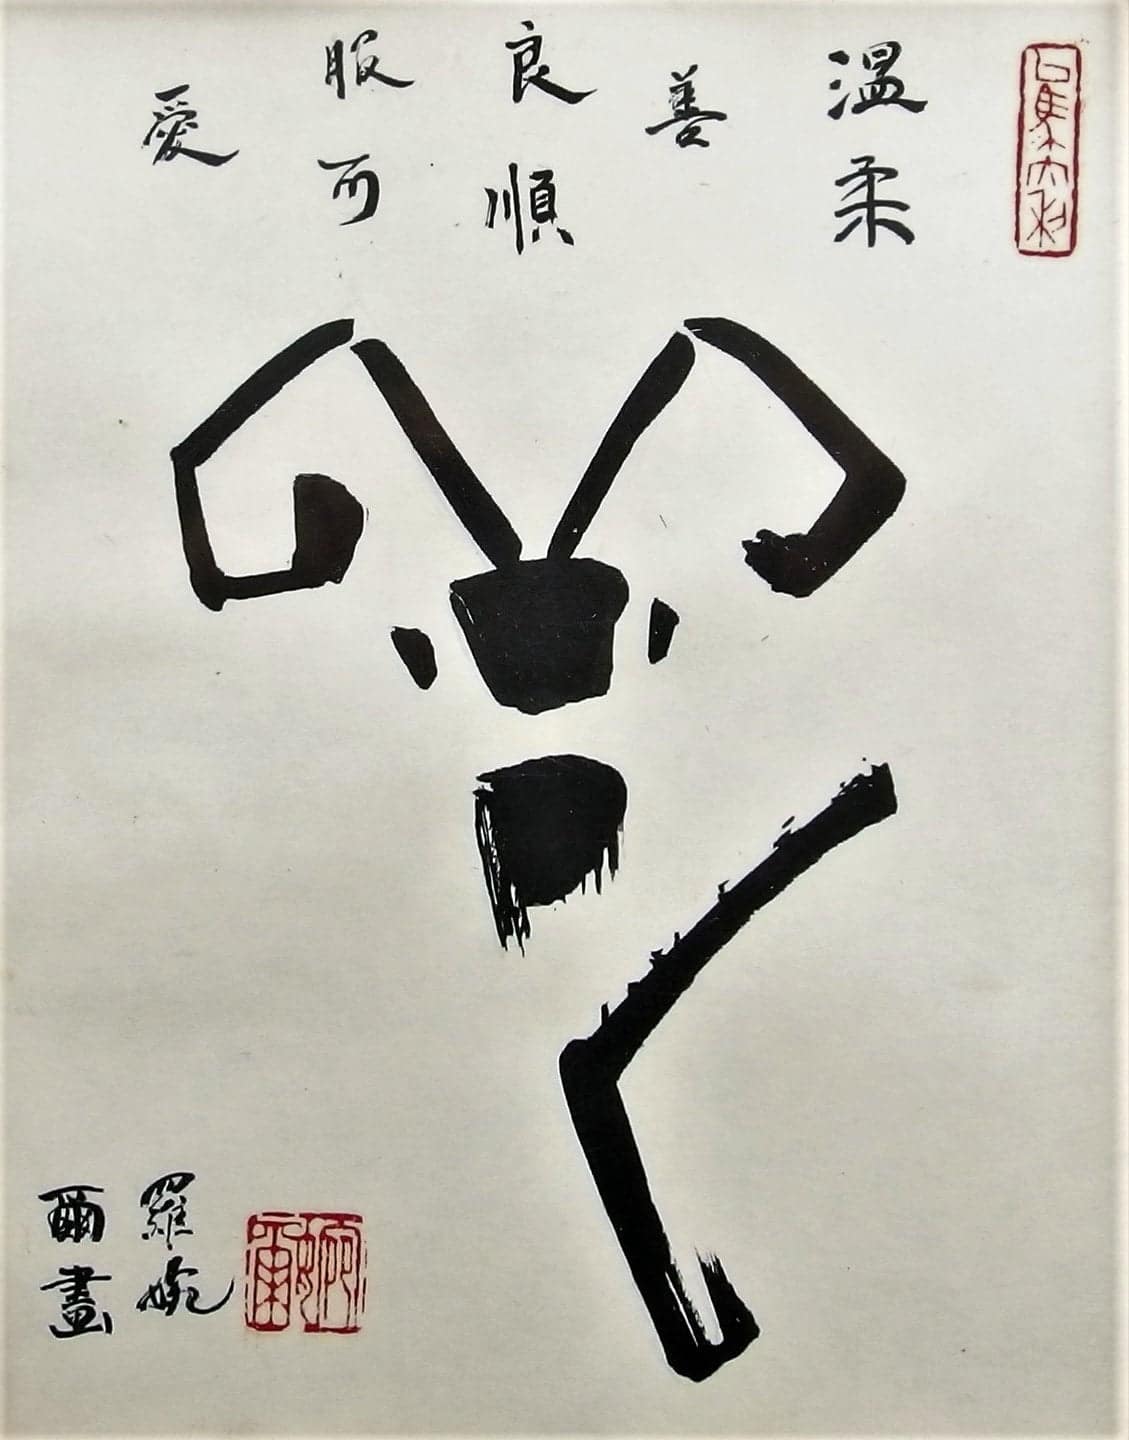 温柔
善
良順
服可
愛
羅婉
爾畫